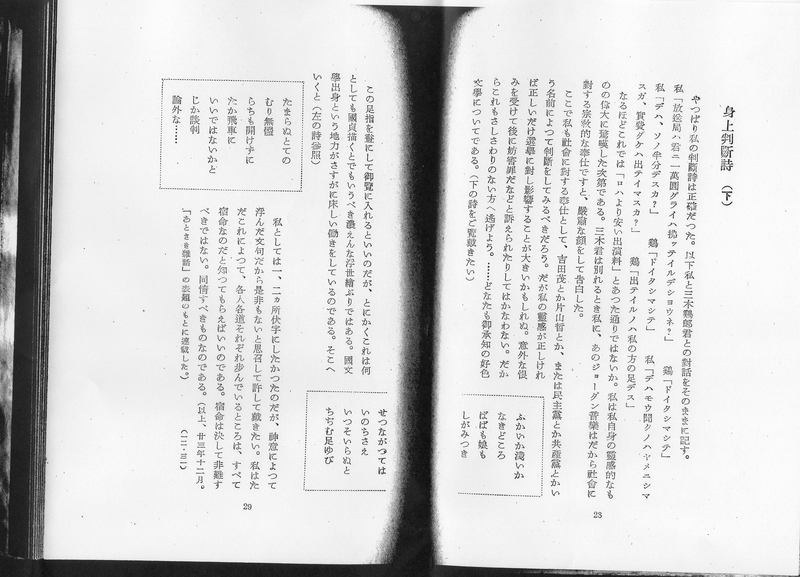 身上判断詩（下）
やつぱり私の判断詩は正確だつた。以下私と三木鶏郎君との対話をそのままに記す。
私「放送局ハ君ニ一萬圓グライハ拂ッテイルデショウネ？」　鶏「ドイタシマシテ」
私「デハ、ソノ半分デスカ？」　鶏「ドイタシマシテ」
スガ、實費ダケハ出テイマスカ？」　鶏「出テイルノハ私の方の足デス」　私「デハモウ聞クノハヤメニシマ
なるほどこれでは「ロハより安い出演料」とあつた通りではないか。私は私自身の靈感的なも
のの偉大に驚嘆した次第である。三木君は別れるとき私に、あのジョーダン音樂はだから社會に
対する宗教的な奉仕ですと、嚴肅な顔をして告白した。
ここで私も社會に対する奉仕として、吉田茂とか片山哲とか、または民主黨とか共産黨とかい
う名前によつて判断をしてみるべきだろう。だが私の靈感が正しけれ
ば正しいだけ選擧に対し影響することが大きいかもしれぬ。意外な恨
みを受けて後に妨害罪だなどと訴えられたりしてはかなわない。だか
らこれもさしさわりのない方へ逃げよう。……どなたも御承知の好色
文學についてである。（下の詩をご覧戴きたい）
ふかいか淺いか
なきどころ
ばばも娘も
しがみつき
23
この足指を竪にして御覽に入れるといいのだが、とにかくこれは何
としても國貞描くとでもいうべき濃えんな浮世繪ぶりではある。國文
學出身という地力がさすがに床しい働きをしているのである。そこへ
いくと（左の詩参照）
せつながつては
いのちさえ
いつそいらぬと
ちぢむ足ゆび
たまらぬとての
むり無體
らちも開けずに
たか飛車に
いいではないかと
じか談判
論外な……
私としては一、二ヵ所伏字にしたかつたのだが、神意によつて
浮んだ文句だから是非もないと思召して許して戴きたい。私はた
だこれによつて、各人各道それぞれ歩んでいるところは、すべて
宿命なのだと知つてもらえばいいのである。宿命は決して非難す
べきではない。同情すべきものなのである。（以上、廿三年十二月。
『あとさき雜話』の表題のもとに連載した。）
（二三・三）
29